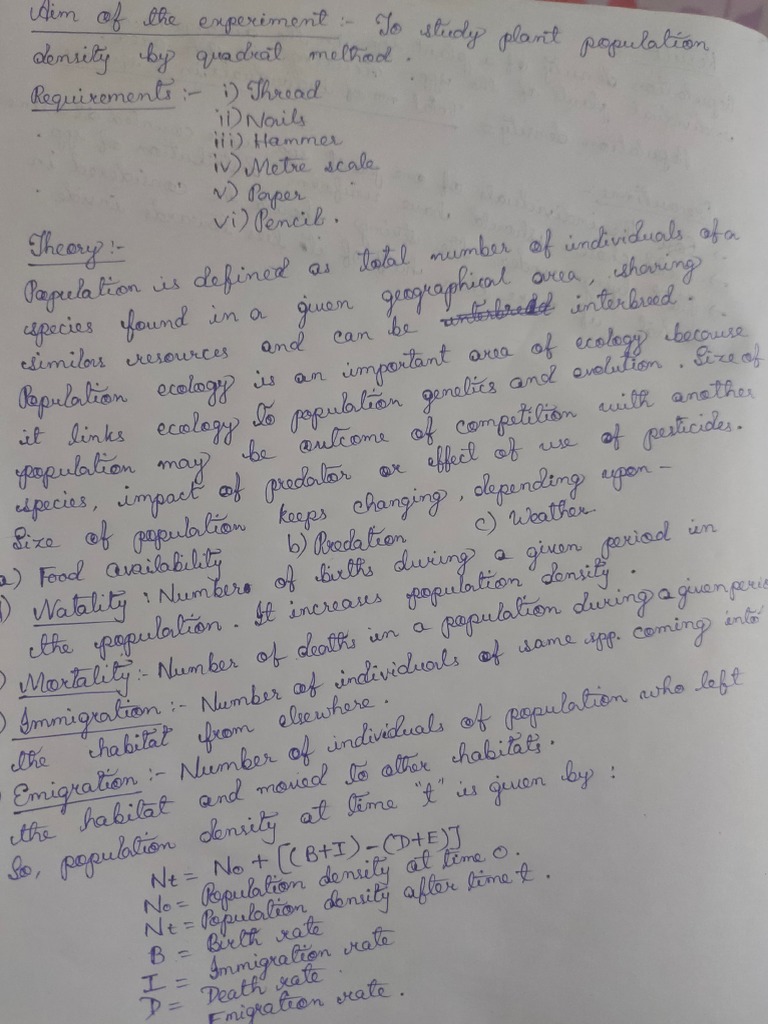 Aim of the experiment :- To study plant population
density by quadrat method.
Requirements :- i) Thread
ii) Nails
iii) Hammer
iv) Metre scale
v) Paper
vi) Pencil.
Theory :-
Population is defined as total number of individuals of a
species found in a given geographical area, sharing
similar resources and can be interbreed.
Population ecology is an important area of ecology because
it links ecology to population genetics and evolution. Size of
population may be outcome of competition with another
species, impact of predator or effect of use of pesticides.
Size of population keeps changing, depending upon -
a) Food availability b) Predation c) Weather
) Natality : Number of births during a given period in
the population. It increases population density.
) Mortality :- Number of deaths in a population during a given perio
) Immigration :- Number of individuals of same spp. coming into
the habitat from elsewhere.
) Emigration :- Number of individuals of population who left
the habitat and moved to other habitats.
So, population density at time "t" is given by :
Nt = No + [(B+I) - (D+E)]
No = Population density at time 0.
Nt = Population density after time t.
B = Birth rate
I = Immigration rate
D = Death rate
Emigration rate.